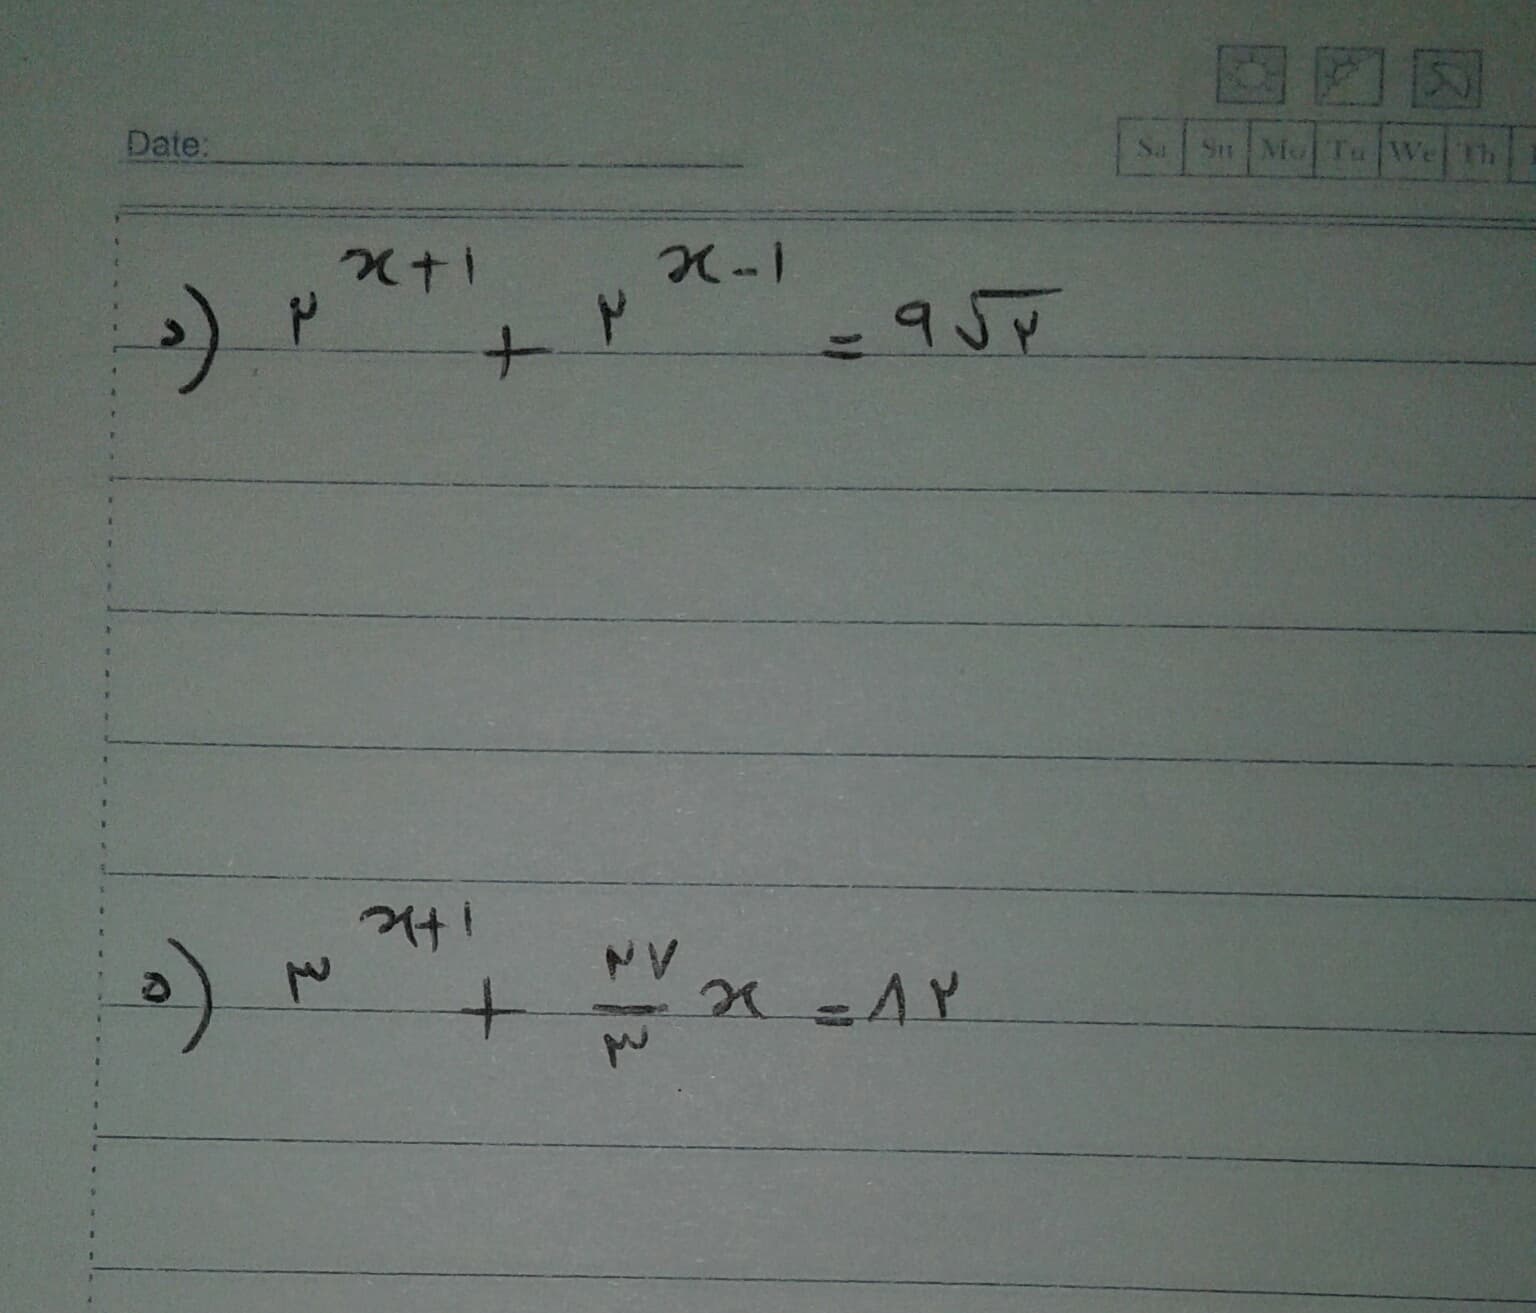 Date:
Sa Su Mo Tu We Th
د) ۲^{x+۱} + ۲^{x-۱} = ۹√۲
ه) ۳^{x+۱} + \frac{۲۷}{۳} x = ۸۲